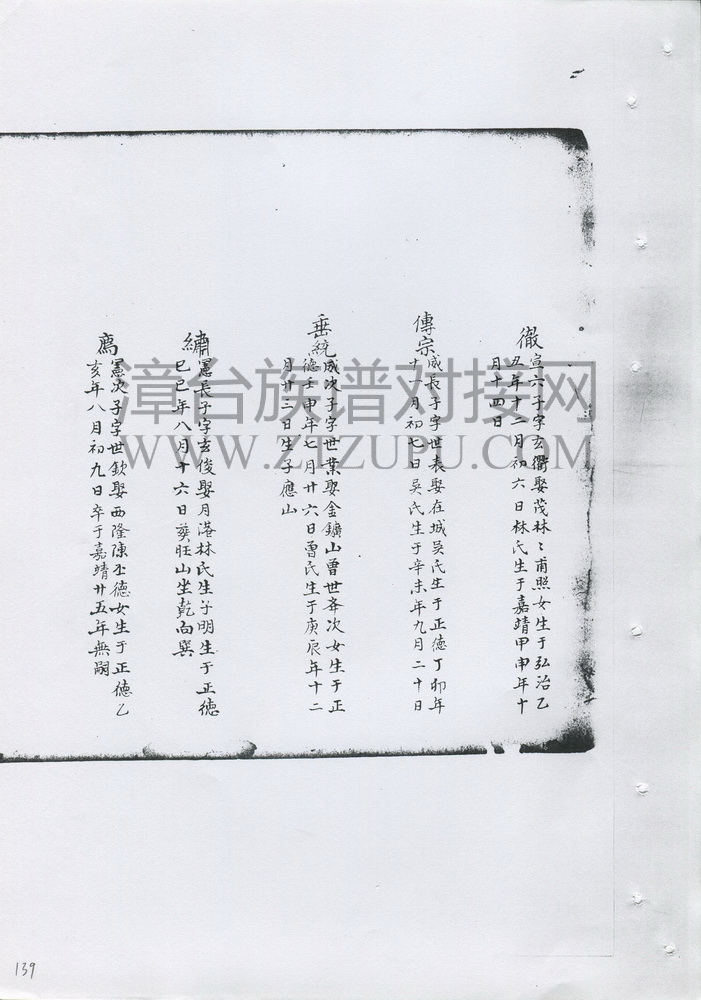 徹
宣六子字玄衢娶茂林〻甫照女生于弘治乙
丑年十二月初六日林氏生于嘉靖甲申年十
月十四日
傳宗
咸長子字世表娶在城吳氏生于正德丁卯年
十一月初七日吳氏生于辛未年九月二十日
垂統
咸次子字世業娶金鑛山曾世吝次女生于正
德壬申年七月廿六日曾氏生于庚辰年十二
月廿三日生子應山
繡
憲長子字玄俊娶月港林氏生子明生于正德
己巳年八月十六日葬旺山坐乾向巽
廌
憲次子字世欽娶西隆陳丕德女生于正德乙
亥年八月初九日卒于嘉靖廿五年無嗣
漳台族谱对接网
WWW.ZTZUPU.COM
139